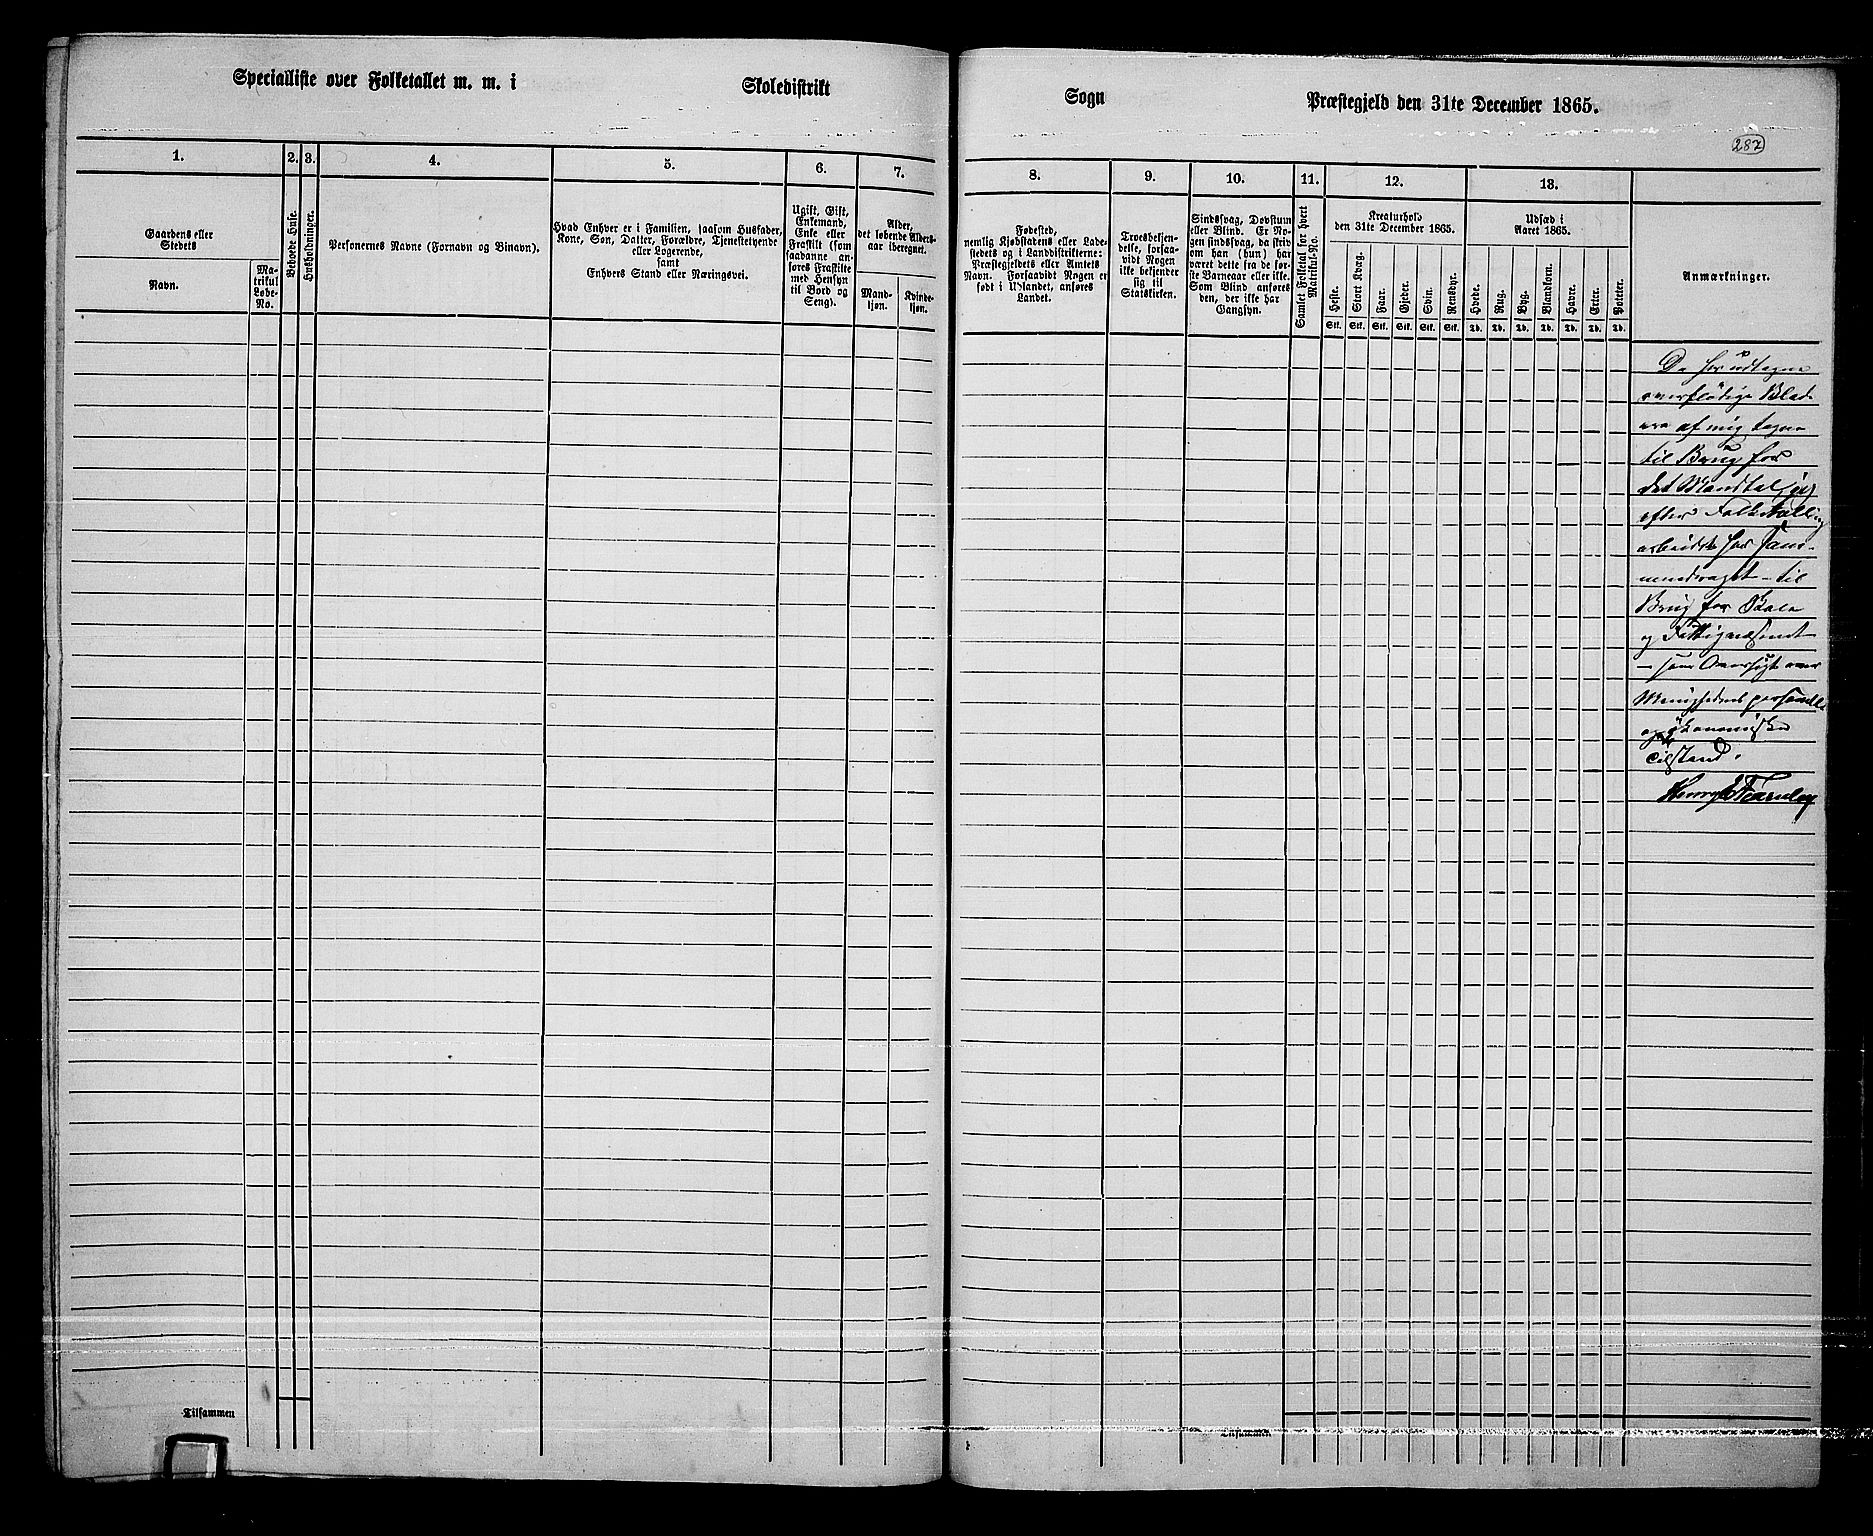 Specialliste over Folketallet m. m. i
Skoledistrikt
Sogn
Præstegjeld den 31te December 1865.
287
1.
2.
3.
4.
5.
6.
7.
8.
9.
10.
11.
12.
13.
Gaardens eller
Stedets
Navn.
Ma-
trikul
Løbe-
No.
Beboede Huse.
Husholdninger.
Personernes Navne (Fornavn og Binavn).
Hvad Enhver er i Familien, saasom Husfader,
Kone, Søn, Datter, Forældre, Tjenestetyende
eller Logerende,
samt
Enhvers Stand eller Næringsvei.
Ugift, Gift,
Enkemand,
Enke eller
Fraskilt (som
saadanne an-
føres Fraskilte
med Hensyn
til Bord og
Seng).
Alder,
det løbende Alders-
aar iberegnet.
Mand-
kjøn.
Kvinde-
kjøn.
Fødested,
nemlig Kjøbstadens eller Lade-
stedets og i Landdistrikterne:
Præstegjeldets eller Amtets
Navn. Forsaavidt Nogen er
født i Udlandet, anføres
Landet.
Troesbekjen-
delse, forsaa-
vidt Nogen
ikke bekjender
sig til
Statskirken.
Sindssvag, Døvstum
eller Blind. Er No-
gen sindssvag, da skriv
om han (hun) har
været dette fra de før-
ste Barneaar eller ikke.
Som Blind anføres
den, der ikke har
Gangsyn.
Samlet Folketal for hvert
Matrikul-No.
Kreaturhold
den 31te December 1865.
Heste.
Stort Kvæg.
Faar.
Gjeder.
Svin.
Rensdyr.
Stk. Stk. Stk. Stk. Stk. Stk.
Udsæd i
Aaret 1865.
Hvede.
Rug.
Byg.
Blandkorn.
Havre.
Erter.
Poteter.
Td. Td. Td. Td. Td. Td. Td.
Anmærkninger.
De her udtagne
overflødige Blade
ere af mig tagne
til Brug for
det Mandtal jeg
efter Folketælling
arbeidet har sam-
mendraget - til
Brug for Skole
og Fattigvæsenet
- som Oversigt over
Menighedens personelle
og økonomiske
Tilstand.
Henry Fearnley
Tilsammen
Tilsammen